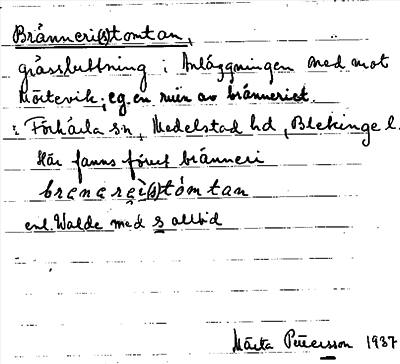 Bränneri(s)tomtan,
gräsbuttning i Anläggningen ned mot
; eg. en ruin av bränneriet.
i Förkärla sn, Medelstad hd, Blekinge l.
Här fanns förut bränneri
brenerei(s)tomtan
enl. Walde med s alltid
Märta Petersson 1937